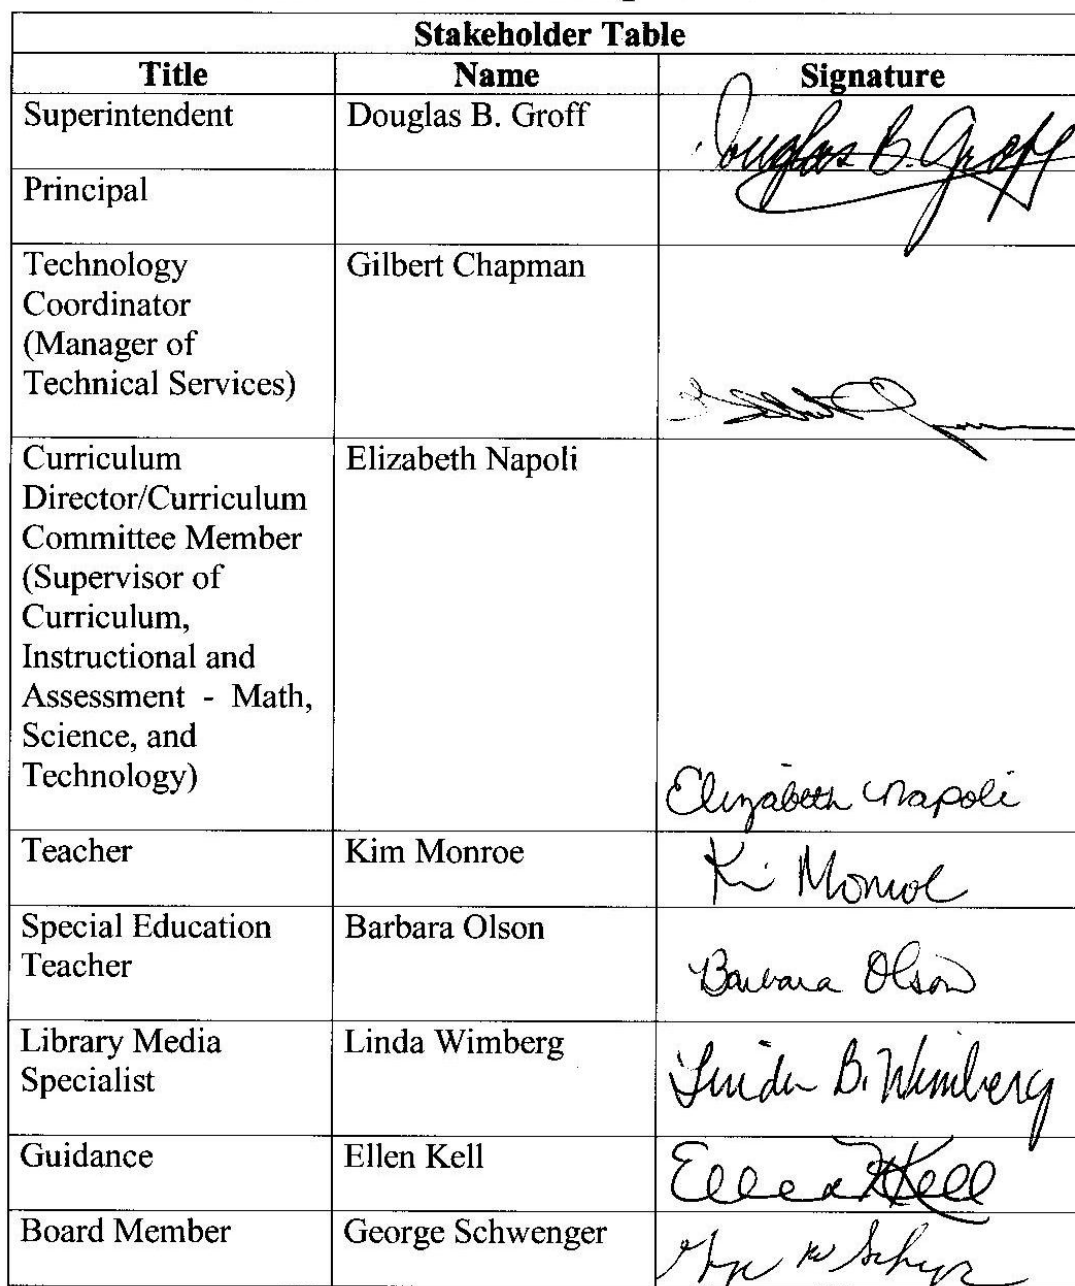 Stakeholder Table
Title Name Signature
Superintendent Douglas B. Groff Douglas B. Groff
Principal
Technology Gilbert Chapman
Coordinator
(Manager of
Technical Services)
Curriculum Elizabeth Napoli
Director/Curriculum
Committee Member
(Supervisor of
Curriculum,
Instructional and
Assessment - Math,
Science, and
Technology) Elizabeth Napoli
Teacher Kim Monroe Ki Monroe
Special Education Barbara Olson
Teacher Barbara Olson
Library Media Linda Wimberg
Specialist Linda B. Wimberg
Guidance Ellen Kell Ellen Kell
Board Member George Schwenger